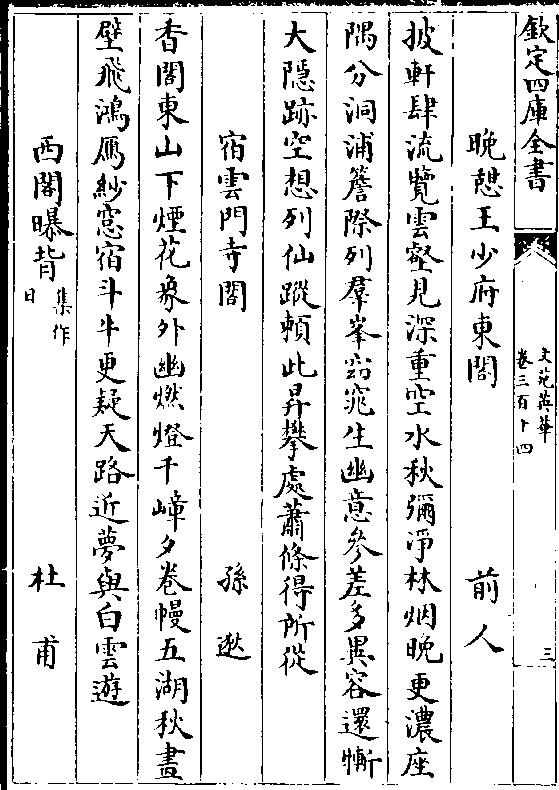 欽定四庫全書
文苑英華
卷三百十四
三
晚憩王少府東閣 前人
披軒肆流覽雲壑見深重空水秋彌淨林烟晚更濃座
隅分洞浦簷際列羣峯窈窕生幽意參差多異容還慚
大隱跡空想列仙蹤頼此昇攀處蕭條得所從
宿雲門寺閣 孫逖
香閣東山下煙花象外幽燃燈千嶂夕卷幔五湖秋畫
壁飛鴻鴈紗窓宿斗牛更疑天路近夢與白雲遊
西閣曝背集作日 杜甫